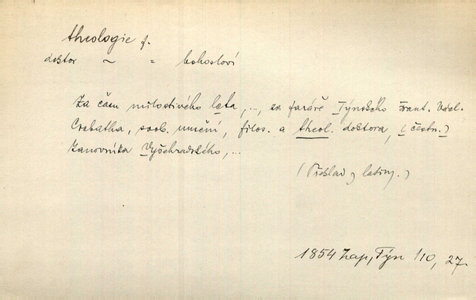 theologie f.
doktor ~ = bohosloví
Za čas milostivého léta, .., za faráře Týnského Frant. Václ.
svob. umění, filos. a theol. doktora, (čestn.)
kanovníka Vyšehradského, ..
(Překlad z latiny.)
1854 Zap, Týn 110, 27.